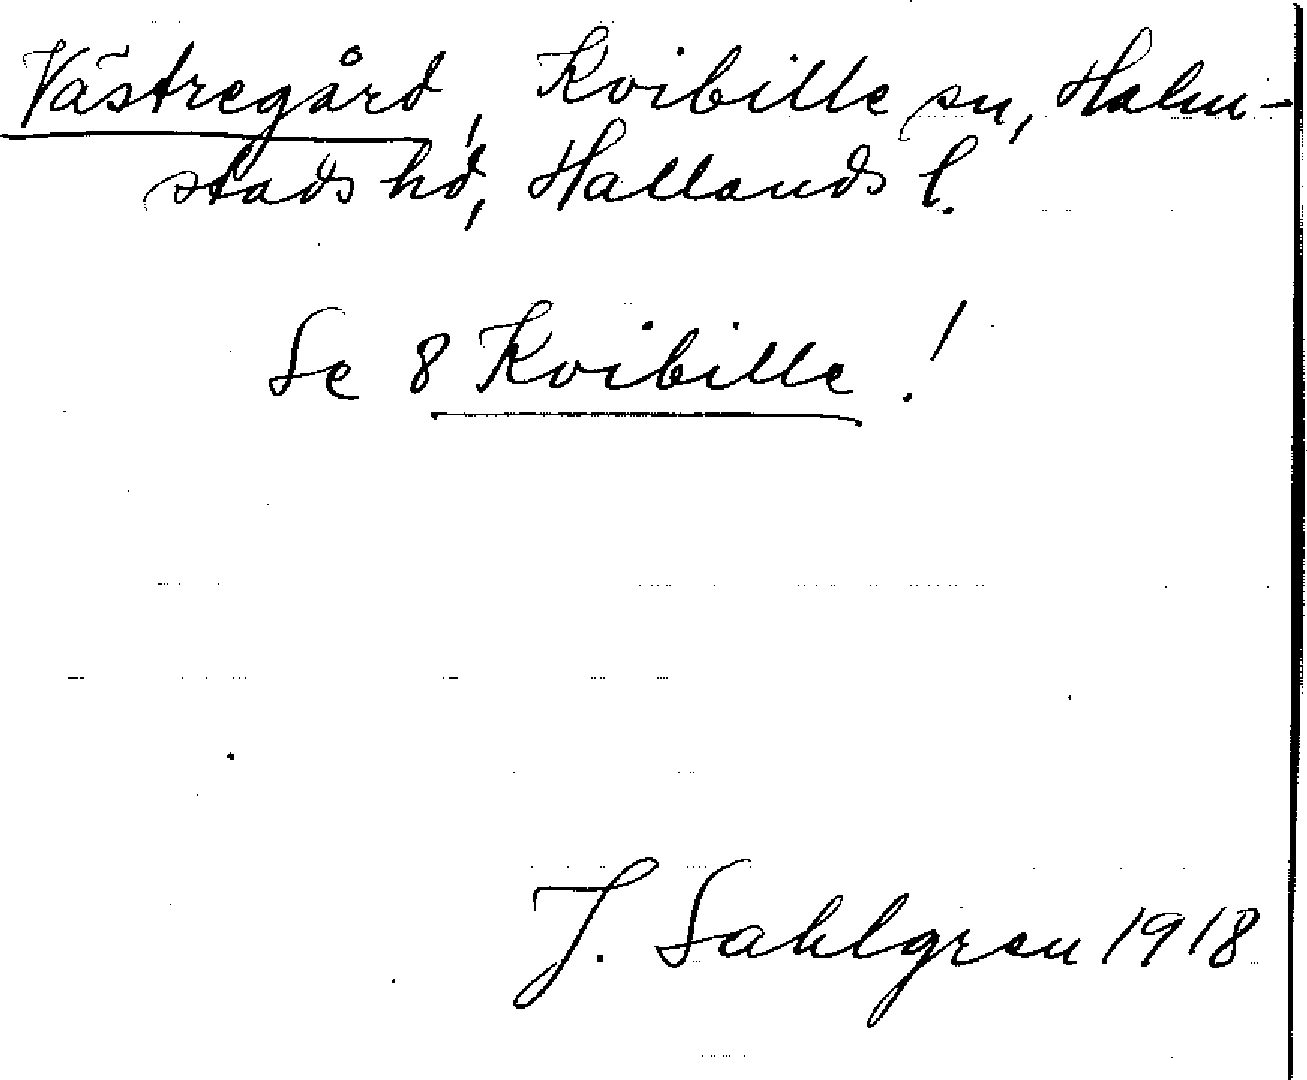 Västregård, Kvibille sn, Halm-
stads hd, Hallands l.
Se 8 Kvibille !
J. Sahlgren 1918